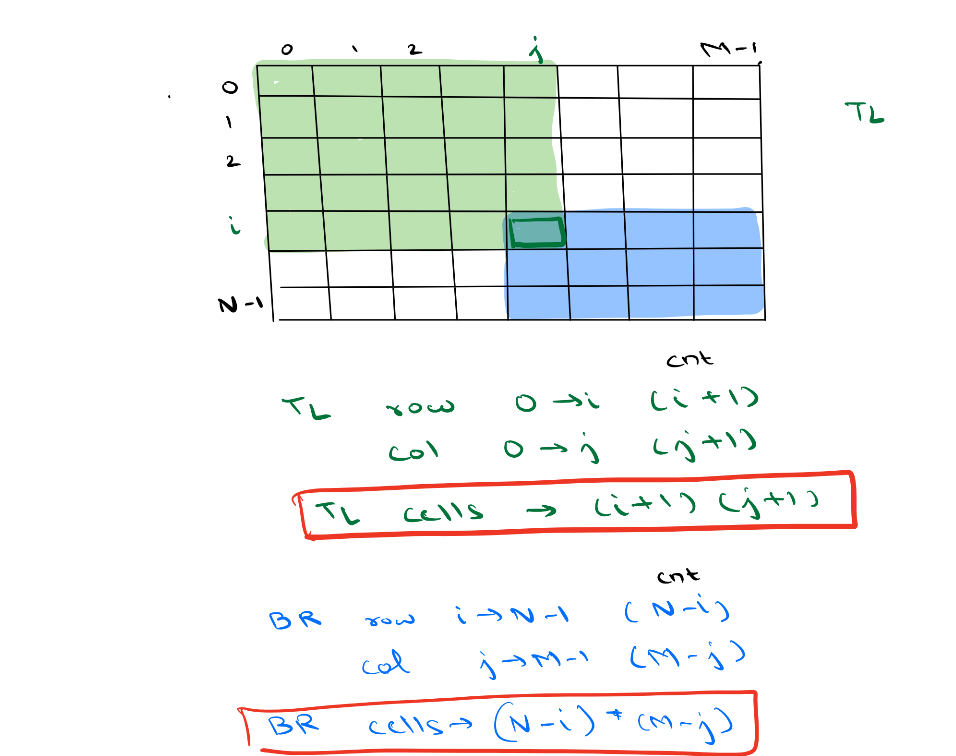 0 1 2 j M-1
0
1
TL
2
i
N-1
cnt
TL row 0 → i (i+1)
col 0 → j (j+1)
TL cells → (i+1) (j+1)
cnt
BR row i → N-1 (N-i)
col j → M-1 (M-j)
BR cells → (N-i) * (M-j)